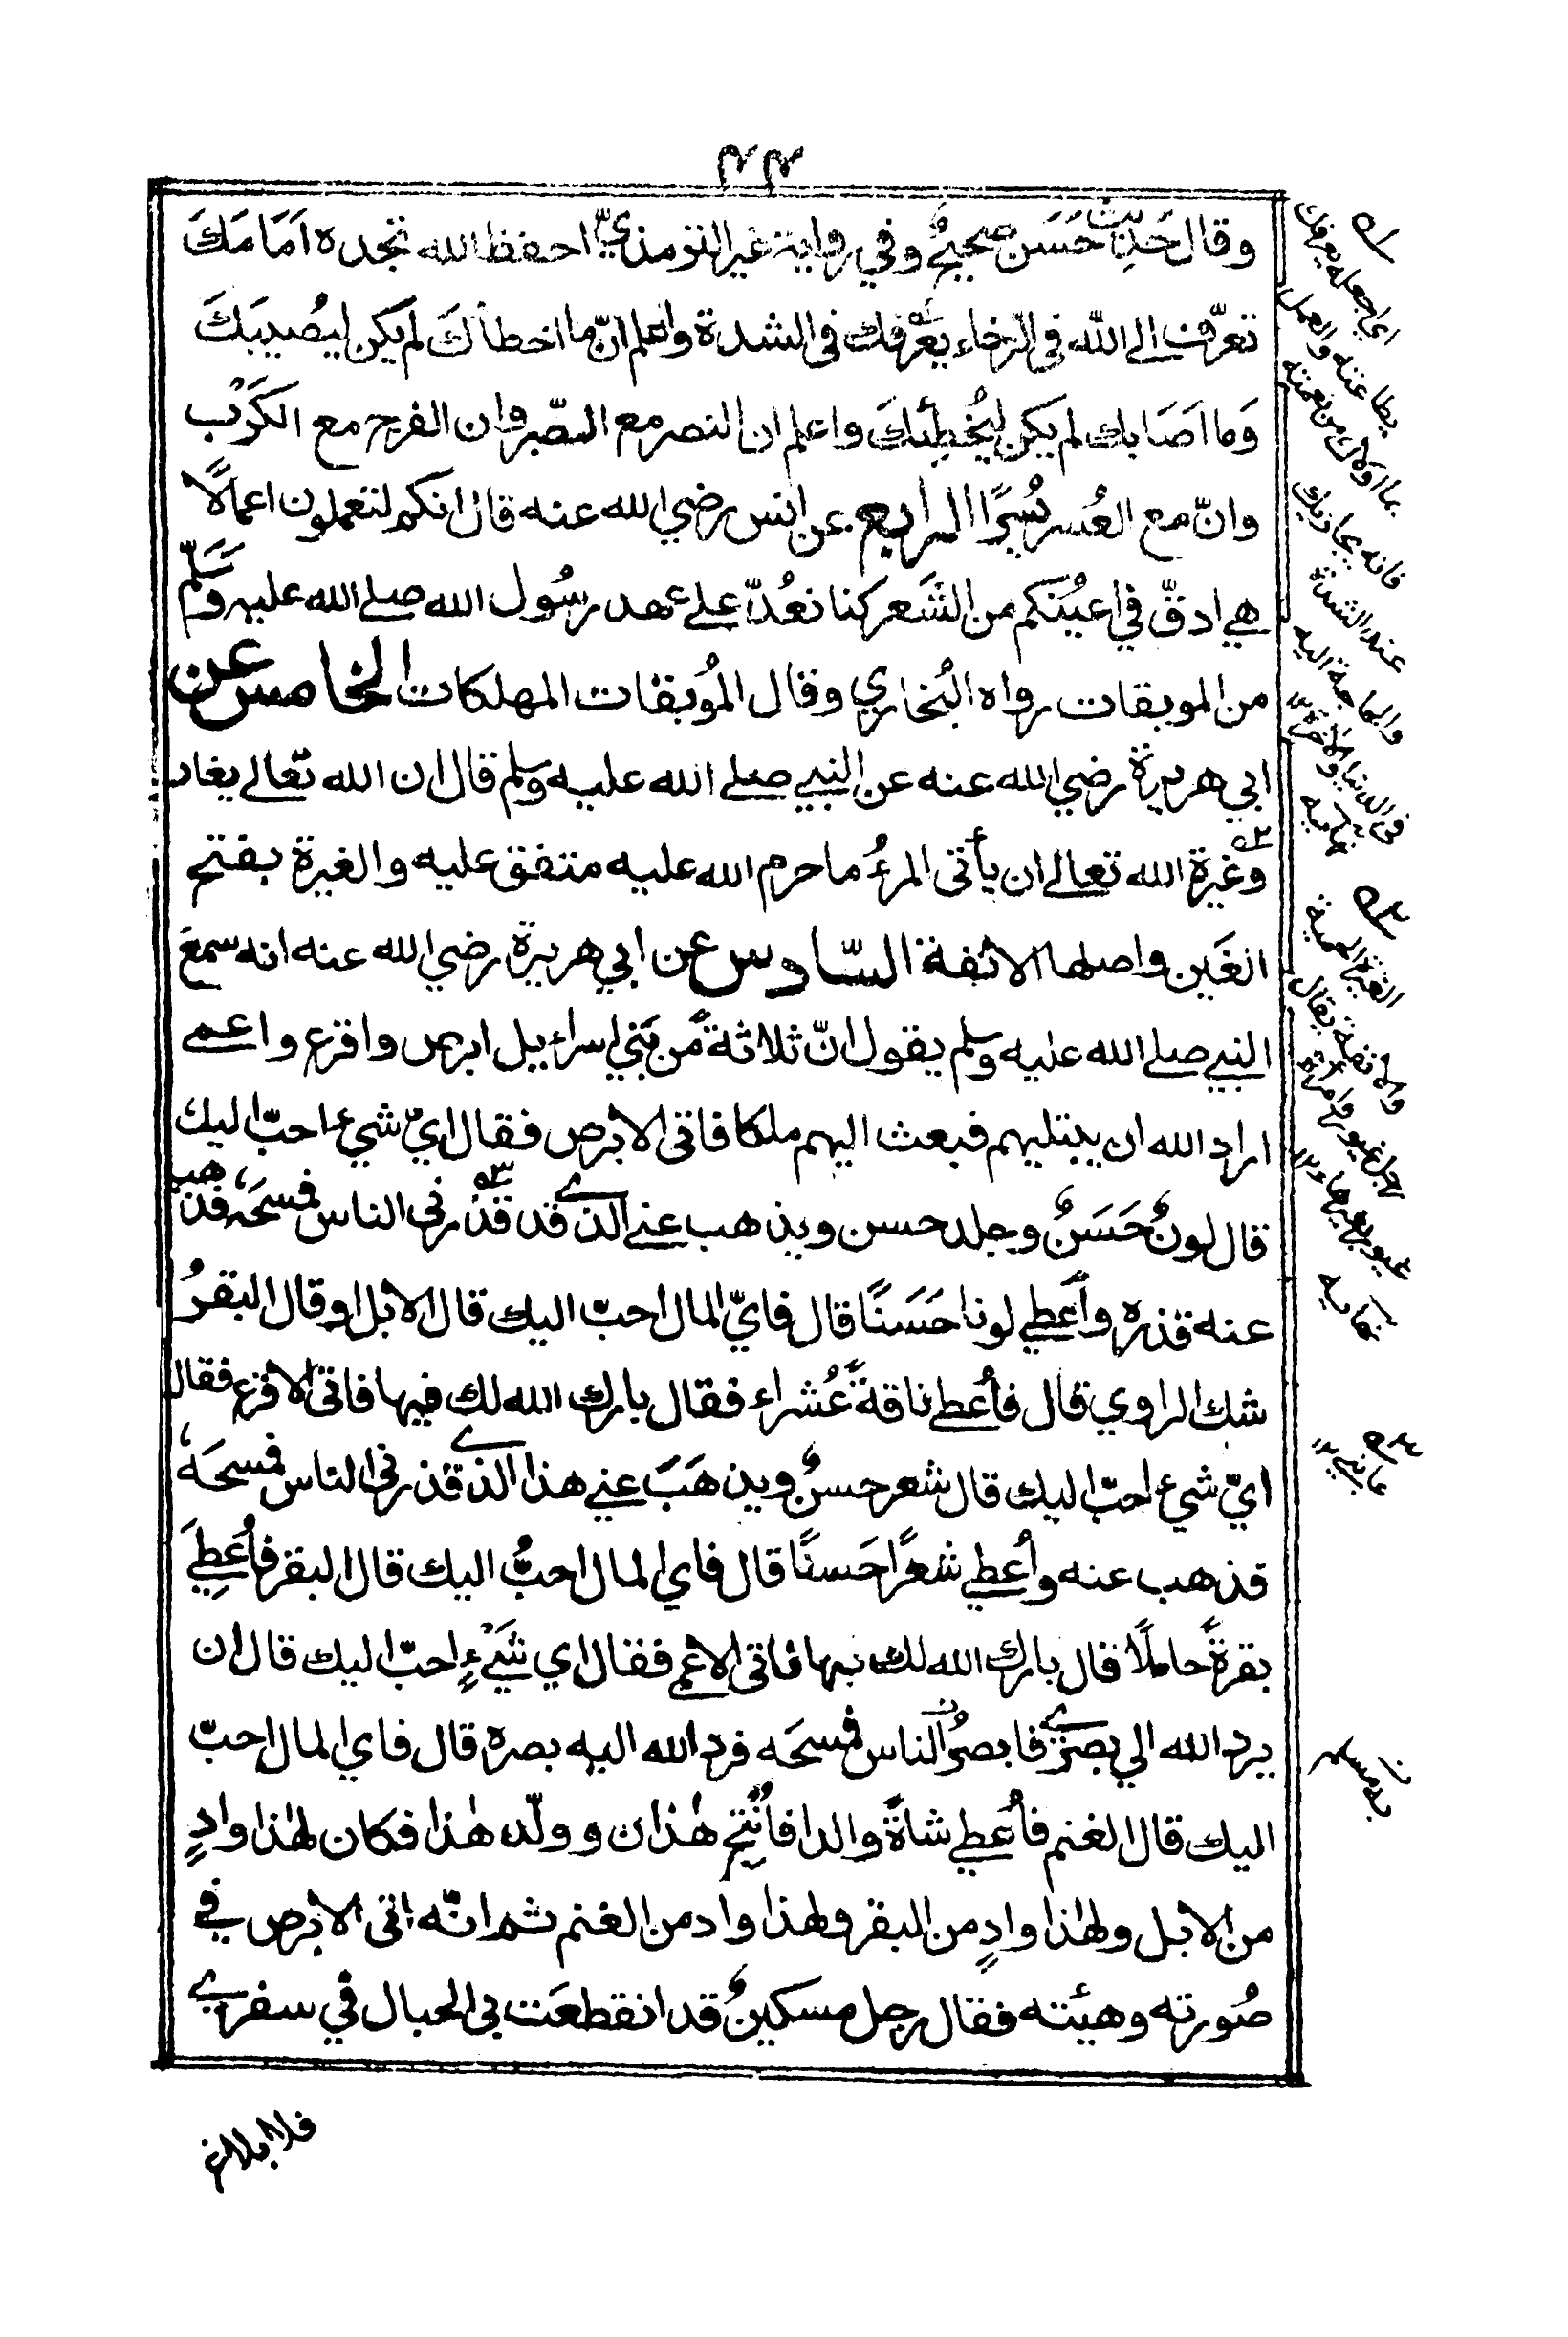 ٢٣
وقال حديث حَسَن صحيحٌ وفي رواية غير الترمذيّ احفظ الله تجده اَمَامَكَ
تعرّف الى الله في الرّخاء يَعْرفك في الشدة واعلم انّ ما اخطأكَ لم يكن ليُصيبَكَ
وَما اصَابك لم يكن ليُخطِئكَ واعلم ان النصر مع الصّبر وان الفرج مع الكَرْب
وانّ مع العُسر يُسرًا الرابع عن انس رضي الله عنه قال انكم لتعملون اعمالًا
هي ادقّ في اعيُنكم من الشَعر كنا نعُدّ على عهد رسُول الله صلى الله عليه وسَلّم
من الموبقات رواه البُخاري وقال المُوبقات المهلكات الخامس عن
ابي هريرة رضي الله عنه عن النبي صلى الله عليه وسلم قال ان الله تعالى يغار
وغَيرة الله تعالى ان يأتي المرءُ ما حرم الله عليه متفق عليه والغيرة بفتح
الغَين واصلها الانفة السّادس عن ابي هريرة رضي الله عنه انه سمعَ
النبي صلى الله عليه وسلم يقول انّ ثلاثةً من بَني اسراءيل ابرص واقرع واعمى
اراد الله ان يبتليهم فبعث اليهم ملكا فاتى الابرص فقال ايّ شيء احبّ اليك
قال لونٌ حَسَنٌ وجلد حسن ويذهب عني الذي قد قذرني الناس فمسحَه فذهب
عنه قذره وأعطي لونا حَسَنًا قال فايّ المال احبّ اليك قال الابل او قال البقرُ
شك الراوي قال فأُعطي ناقةً عُشراء فقال بارك الله لك فيها فاتى الاقرع فقال
ايّ شيء احبّ اليك قال شعر حسنٌ ويذهَبَ عني هذا الذي قذرني الناس فمسحَهُ
فذهب عنه وأُعطي شعرًا حَسنًا قال فاي المال احبُّ اليك قال البقر فأُعطِيَ
بقرةً حاملًا قال بارك الله لك بها فاتى الاعمى فقال اي شَيْءٍ احبّ اليك قال ان
يرد الله الي بصري فابصرُ الناس فمسحَه فرد الله اليه بصره قال فاي المال احبّ
اليك قال الغنم فأُعطي شاةً والدا فأُنتج هٰذان وولّد هٰذا فكان لهٰذا وادٍ
من الابل ولهٰذا وادٍ من البقر ولهذا واد من الغنم ثم انّه اتى الابرص في
صُورته وهيئته فقال رجل مسكينٌ قد انقطعَت بي الحبال في سفري
فلا بلاغ
اي اجعله يعرفك
بطاعته والعمل
بما اولاك من نعمته
فانه يجازيك
عند الشدة
والحاجة اليه
في الدنيا والاخرة
نهاية
الغيرة الحمية
والانفة يقال
رجل غيور وامرأة
غيور